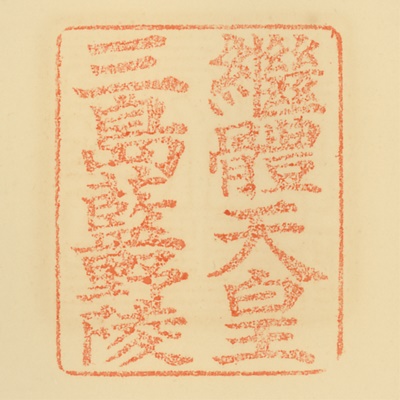 繼體天皇
三島藍野陵